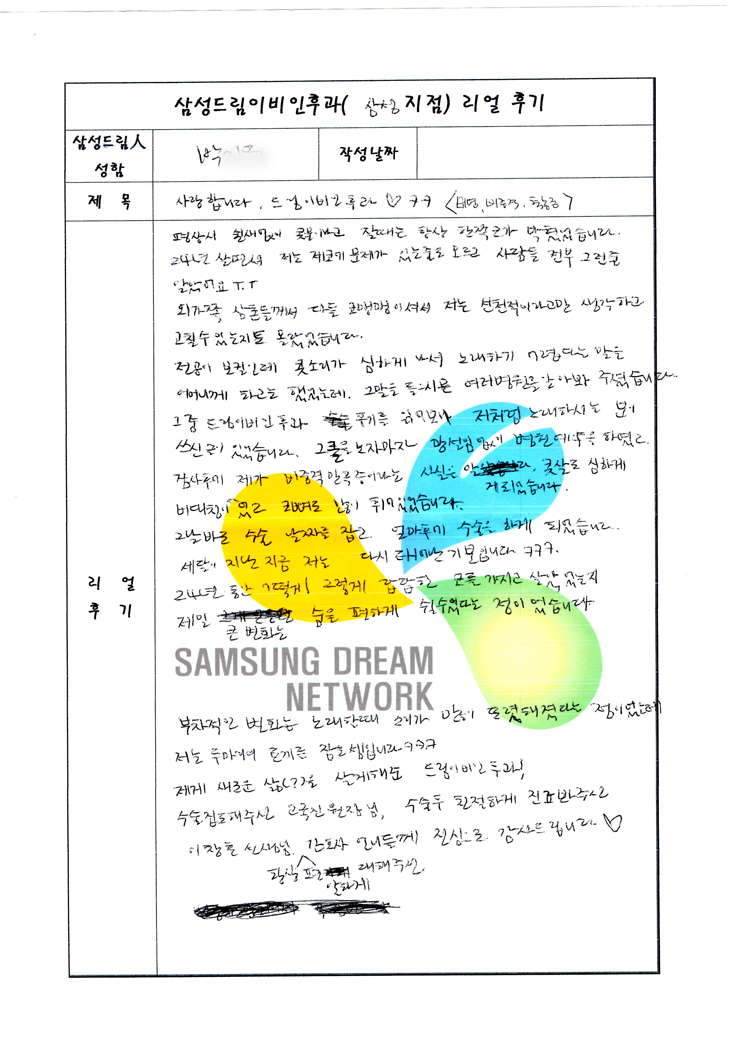 삼성드림이비인후과( 삼성 지점) 리얼 후기
삼성드림人
성함
박
작성날짜
제 목
사랑합니다, 드림이비인후과 ♡ ㅋㅋ
평상시 쉴새없이 콧물이나고 잘때는 항상 한쪽코가 막혔었습니다.
24년 살면서 저는 제코가 문제가 있는줄도 모르고 사람들 전부 그런줄
알았어요 T.T
외가쪽 삼촌들께서 다들 코맹맹이셔서 저는 선천적이라고만 생각하고
고칠수 있는지도 몰랐었습니다.
전공이 보컬인데 콧소리가 심하게 나서 노래하기 어렵다는 말을
어머니께 하고는 했었는데, 그말을 들으시곤 여러병원을 알아봐 주셨습니다.
그중 드림이비인후과 후기를 읽어보니 저처럼 노래하시는 분이
쓰신 글이 있었습니다. 그글을 보자마자 망설임없이 병원예약을 하였고
검사후에 제가 비중격만곡증이라는 사실을 알 콧살도 심하게
게 되었습니다.
비대칭이 있고 좌우로 많이 휘어있었습니다.
그날 바로 수술 날짜를 잡고 얼마후에 수술을 하게 되었습니다.
세달이 지난 지금 저는 다시 태어난 기분입니다 ㅋㅋㅋ.
24년동안 어떻게 그렇게 답답한 코를 가지고 살았었는지
리 얼
후 기
제일 숨을 편하게 쉴수있다는 점이었습니다
큰 변화는
SAMSUNG DREAM
NETWORK
부차적인 변화는 노래할때 소리가 많이 또렷해졌다는 점이었는데
저는 두마리의 토끼를 잡은 셈입니다 ㅋㅋㅋ
제게 새로운 삶(??)을 살게해준 드림이비인후과!
수술집도해주신 원장님, 수술후 친절하게 진료봐주신
이장훈 선생님, 간호사 언니들께 진심으로 감사드립니다 ♡
항상 편 대해주신
안하게